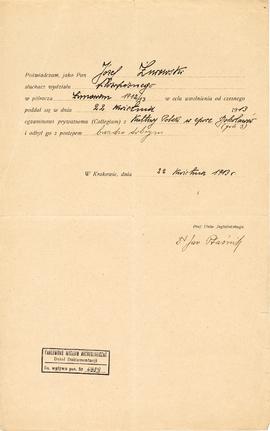 Poświadczam, jako Pan Józef Żurowski
słuchacz wydziału filozoficznego
w półroczu zimowem 1912/13 w celu uwolnienia od czesnego
poddał się w dniu 22 kwietnia 1913
egzaminowi prywatnemu (Colloquium) z Kultury Polski w epoce Jagiellonów
i odbył go z postępem bardzo dobrym
W Krakowie, dnia 22 kwietnia 1913 r.
Prof. Uniw. Jagiellońskiego.
Dr Jan Ptaśnik
PAŃSTWOWE MUZEUM ARCHEOLOGICZNE
Dział Dokumentacji
Ks. wpływu poz. Nr